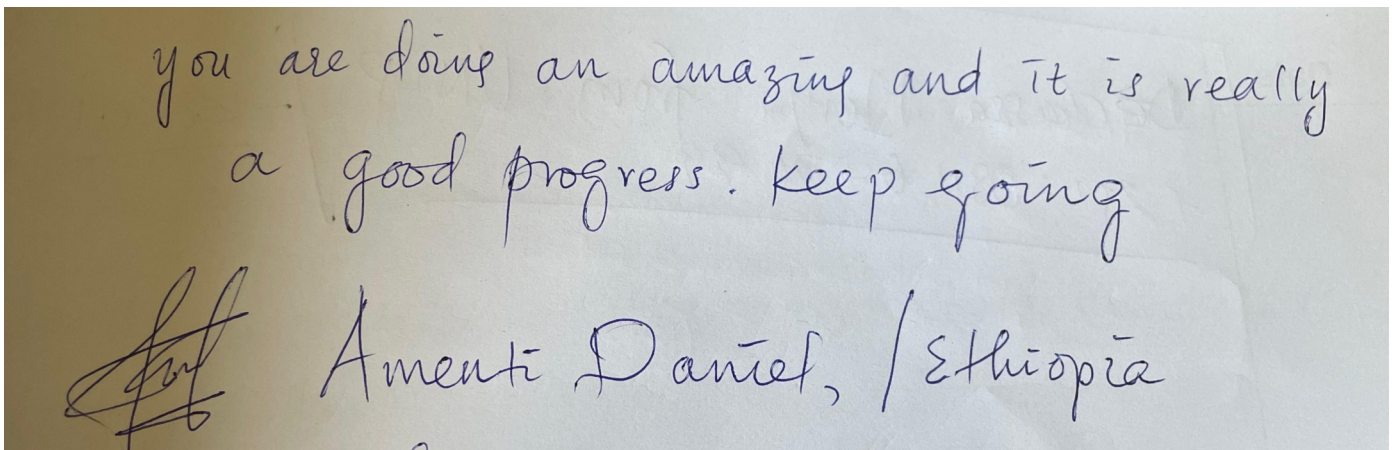 you are doing an amazing and it is really
a good progress. keep going
Amenti Daniel, / Ethiopia